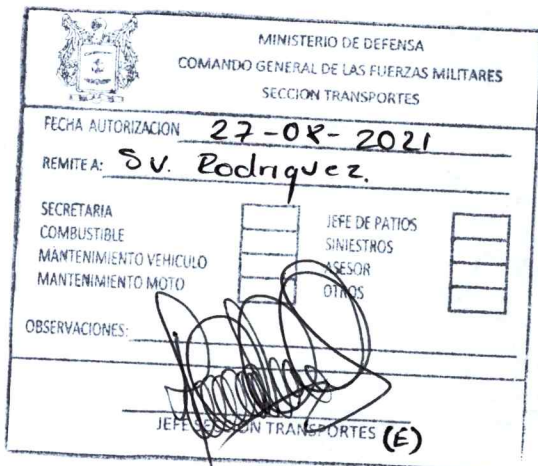 MINISTERIO DE DEFENSA
COMANDO GENERAL DE LAS FUERZAS MILITARES
SECCION TRANSPORTES
FECHA AUTORIZACION 27-08-2021
REMITE A: SV. Rodriguez.
SECRETARIA
COMBUSTIBLE
MANTENIMIENTO VEHICULO
MANTENIMIENTO MOTO
JEFE DE PATIOS
SINIESTROS
ASESOR
OTROS
OBSERVACIONES:
JEFE SECCION TRANSPORTES (E)